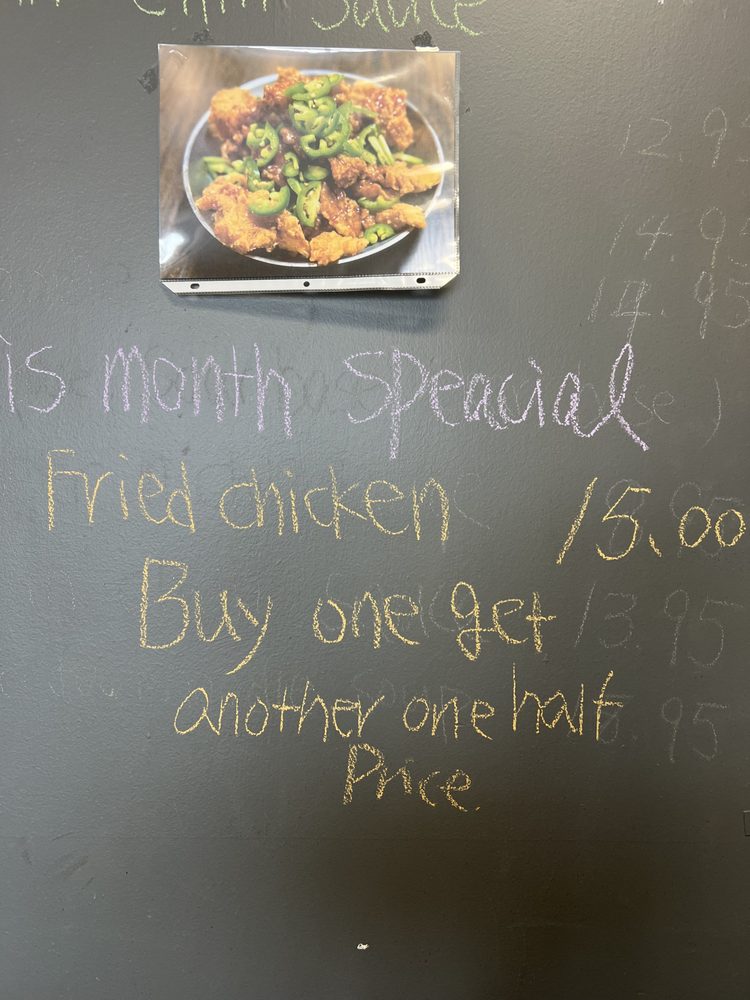 Chili Sauce
12.9
14.95
14.95
is month speacial
Fried chicken 15.00
Buy one get 13.95
another one half .95
Price